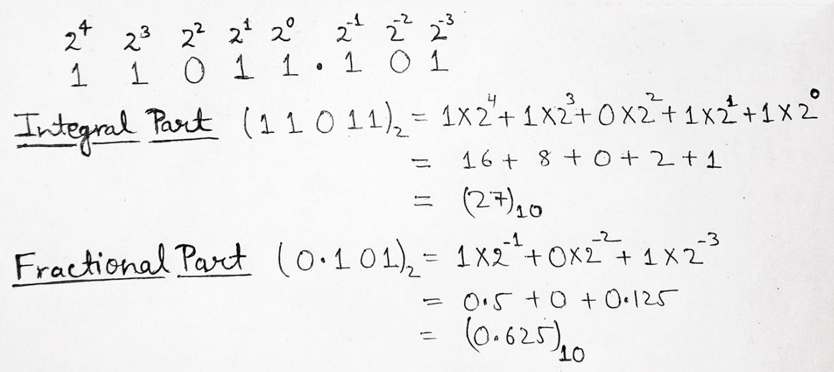 2⁴ 2³ 2² 2¹ 2⁰ 2⁻¹ 2⁻² 2⁻³
1 1 0 1 1 . 1 0 1
Integral Part (1 1 0 11)₂ = 1×2⁴ + 1×2³ + 0×2² + 1×2¹ + 1×2⁰
= 16 + 8 + 0 + 2 + 1
= (27)₁₀
Fractional Part (0.1 01)₂ = 1×2⁻¹ + 0×2⁻² + 1×2⁻³
= 0.5 + 0 + 0.125
= (0.625)₁₀